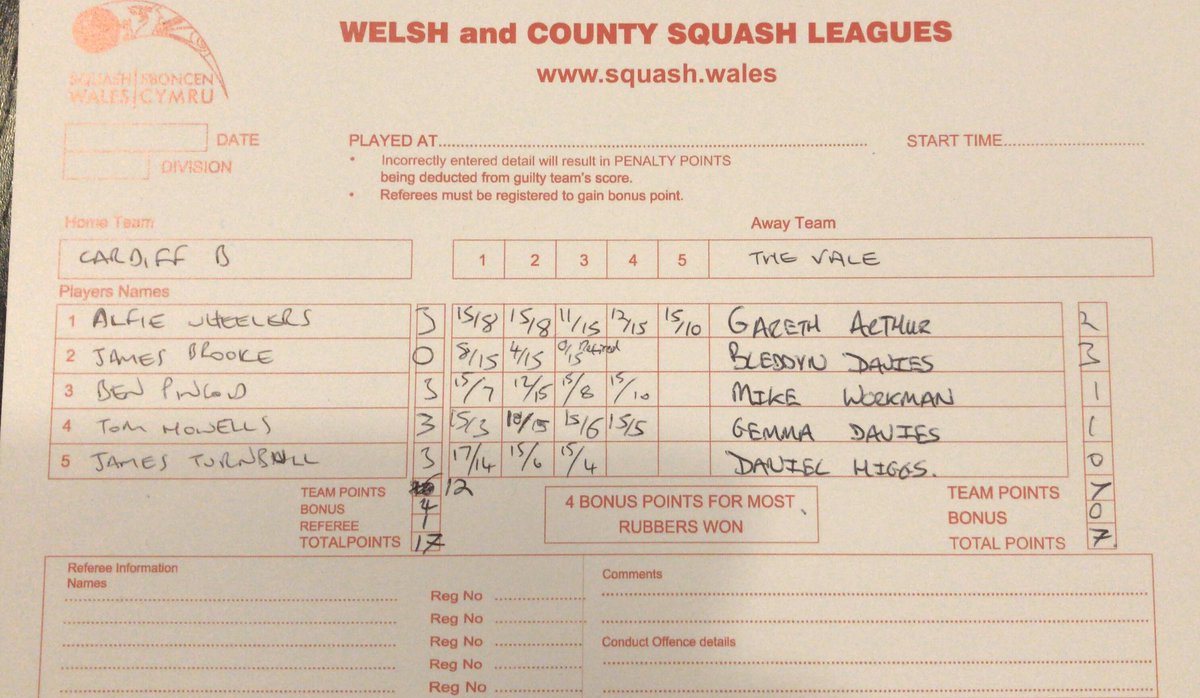 WELSH and COUNTY SQUASH LEAGUES
www.squash.wales
SQUASH SBONCEN
WALES CYMRU
DATE PLAYED AT START TIME
DIVISION
• Incorrectly entered detail will result in PENALTY POINTS
being deducted from guilty team's score.
• Referees must be registered to gain bonus point.
Home Team Away Team
CARDIFF B 1 2 3 4 5 THE VALE
Players Names
1 ALFIE WHEELERS 3 15/8 15/8 11/15 12/15 15/10 GARETH ARTHUR 2
2 JAMES BROOKE 0 8/15 4/15 0/15 Retired BLEDDYN DAVIES 3
3 BEN 3 15/7 12/15 15/8 15/10 MIKE WORKMAN 1
4 TOM HOWELLS 3 15/3 15/6 15/5 GEMMA DAVIES 1
5 JAMES TURNBULL 3 17/14 15/6 15/4 DANIEL HIGGS. 0
TEAM POINTS 12 4 BONUS POINTS FOR MOST TEAM POINTS 7
BONUS 4 RUBBERS WON BONUS 0
REFEREE 1
TOTALPOINTS 17 TOTAL POINTS 7.
Referee Information Comments
Names
Reg No
Reg No
Reg No Conduct Offence details
Reg No
Reg No